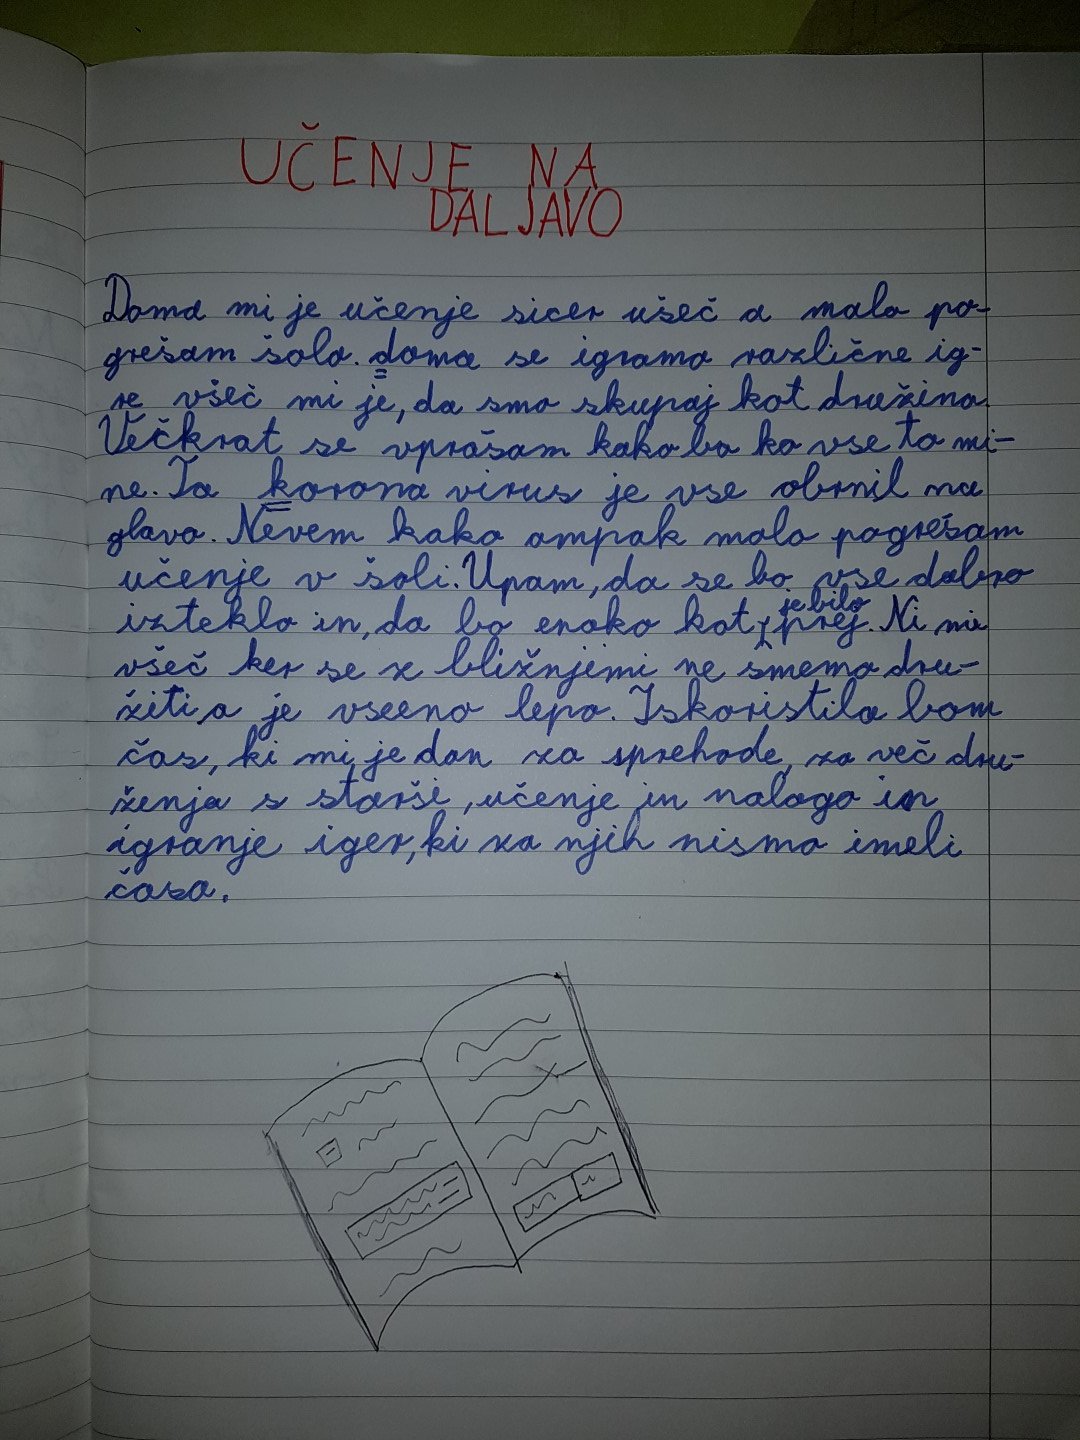 UČENJE NA
DALJAVO
Doma mi je učenje sicer ušeč a malo po-
grešam šolo. doma se igramo različne ig-
re všeč mi je, da smo skupaj kot družina.
Večkrat se vprašam kako bo ko vse to mi-
ne. Ta korona virus je vse obrnil na
glavo. Nevem kako ampak malo pogrešam
učenje v šoli. Upam, da se bo vse dobro
izteklo in, da bo enako kot je bilo prej. Ni mi
všeč ker se z bližnjimi ne smemo dru-
žiti,a je vseeno lepo. Izkoristila bom
čas, ki mi je dan za sprehode, za več dru-
ženja s starši, učenje in nalogo in
igranje iger, ki za njih nismo imeli
časa.